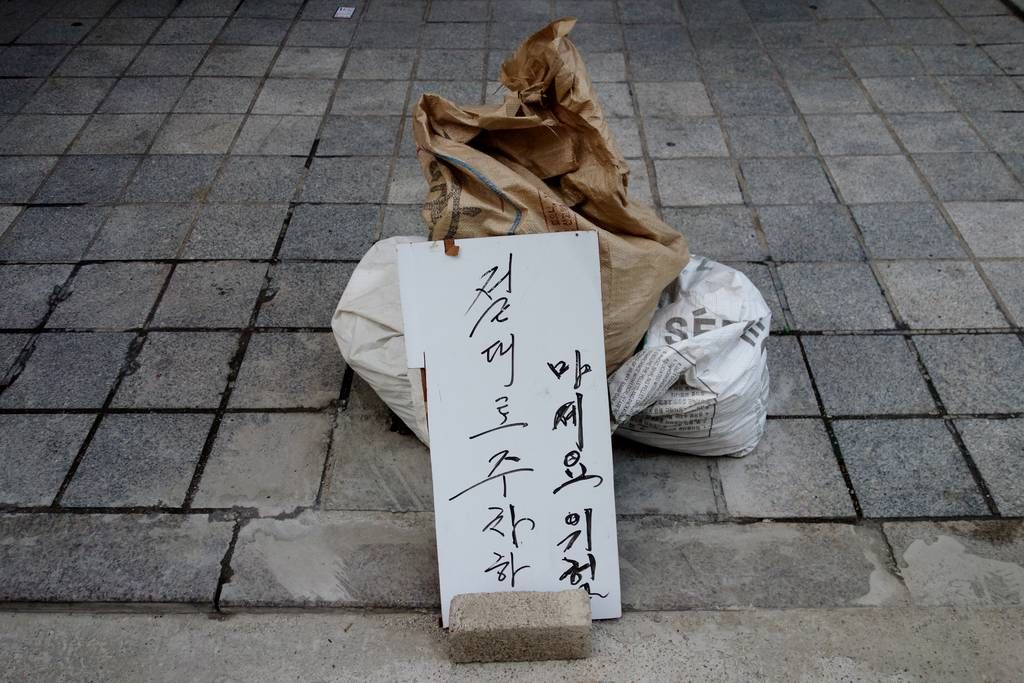 절대로주차하
마세요 위험